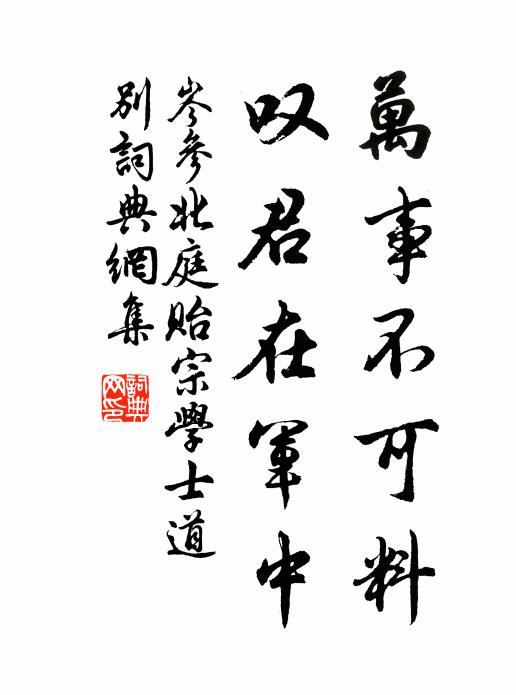 萬事不可料
叹君在軍中
岑參北庭貽宗學士道
別詞典網集
詞典
网印